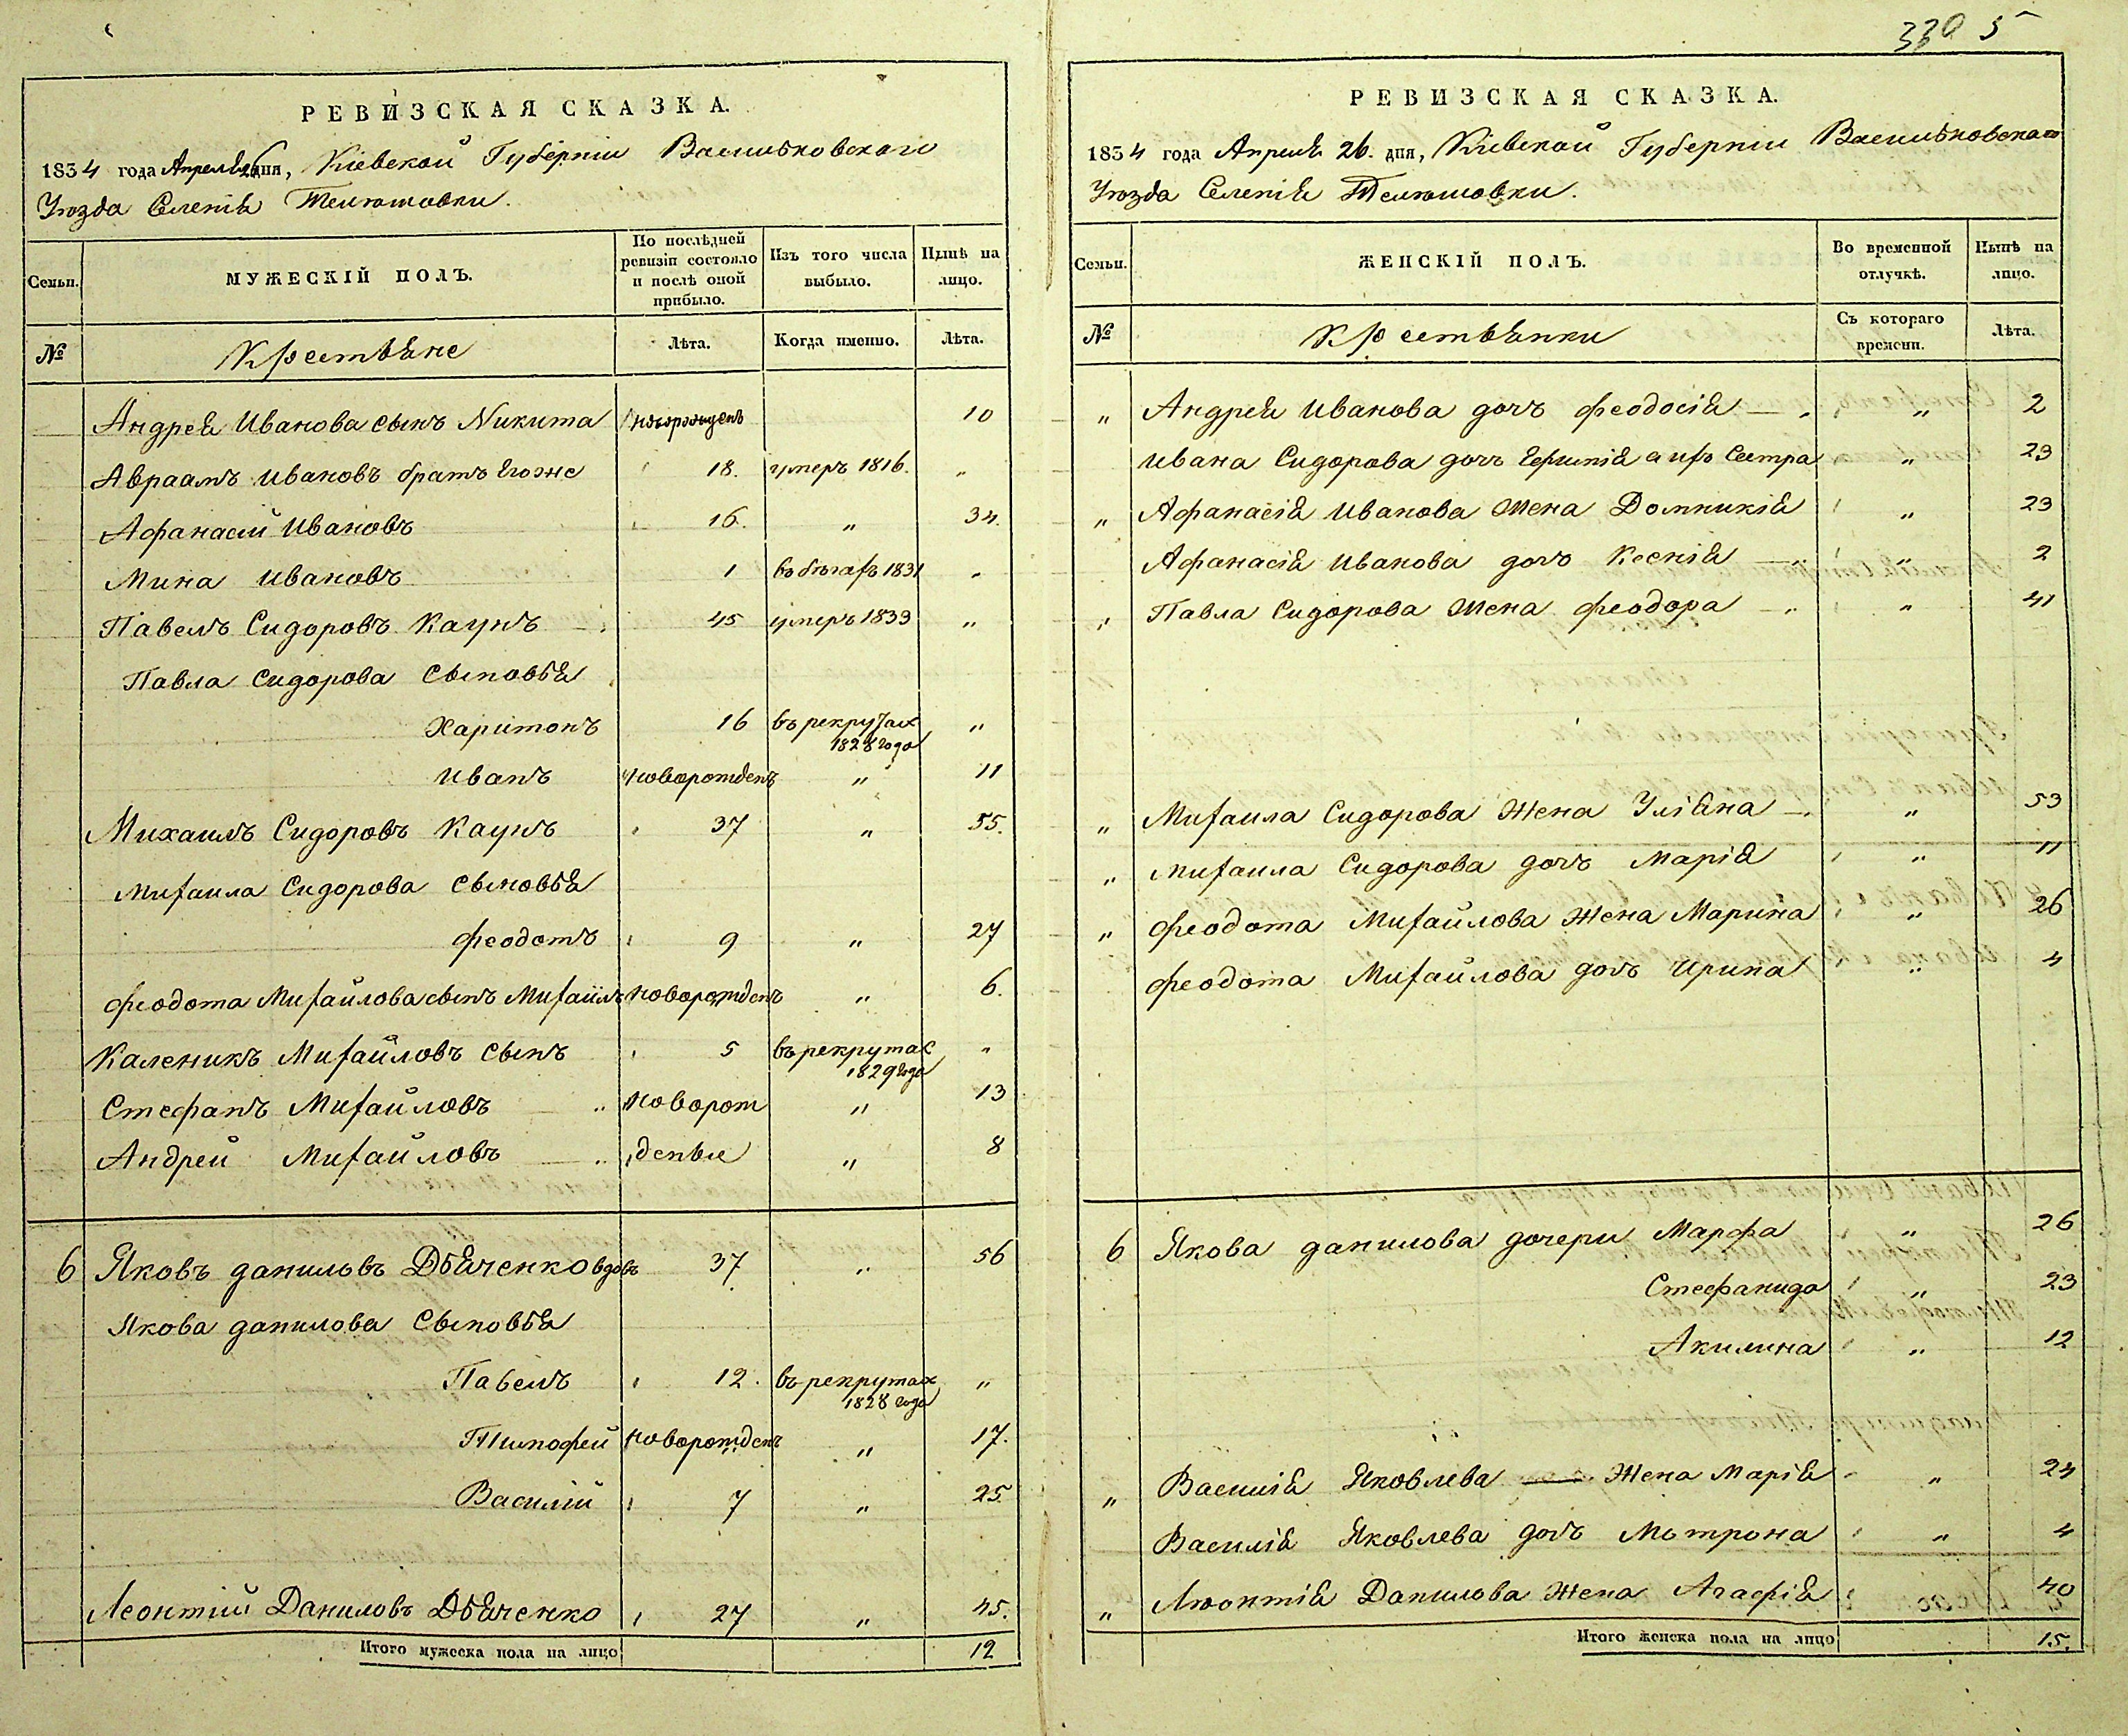 330 5
РЕВИЗСКАЯ СКАЗКА.
1834 года Апреля 26 дня, Кіевской Губерніи Васильковскаго
Уѣзда Селенія Телюшовки.
Семьи.
МУЖЕСКІЙ ПОЛЪ.
По послѣдней ревизіи состояло и послѣ оной прибыло.
Изъ того числа выбыло.
Нынѣ на лицо.
№
Крестьяне
Лѣта.
Когда именно.
Лѣта.
Андрея Иванова сынъ Никита новорожденъ 10
Авраамъ Ивановъ братъ Егоже 18. умеръ 1816. „
Афанасий Ивановъ 16. „ 34.
Мина Ивановъ 1 въ бѣгахъ 1831 „
Павелъ Сидоровъ Каунъ 45 умеръ 1833 „
Павла Сидорова Сыновья
Харитонъ 16 въ рекрутах 1828 года „
Иванъ новорожденъ „ 11
Михаилъ Сидоровъ Каунъ 37 „ 55.
Михаила Сидорова Сыновья
Феодотъ 9 „ 27
Феодота Михайлова сынъ Михаилъ новорожденъ „ 6.
Каленикъ Михайловъ сынъ 5 въ рекрутах 1829 года „
Стефанъ Михайловъ „ новорож „ 13
Андрей Михайловъ „ деные „ 8
6 Яковъ данильвъ Дьяченко вдовъ 37 „ 56
Якова данилова Сыновья
Павелъ 12. въ рекрутах 1828 года „
Тимофей новорожденъ „ 17.
Василий 7 „ 25
Леонтий Даниловъ Дьяченко 27 „ 45.
Итого мужеска пола на лицо 12
РЕВИЗСКАЯ СКАЗКА.
1834 года Апреля 26. дня, Кіевской Губерніи Васильковскаго
Уѣзда Селенія Телюшовки.
Семьи.
ЖЕНСКІЙ ПОЛЪ.
Во временной отлучкѣ.
Нынѣ на лицо.
№
Крестьянки
Съ котораго времени.
Лѣта.
„ Андрея Иванова дочъ Феодосія „ 2
Ивана Сидорова дочъ Ефимія а ихъ Сестра „ 23
„ Афанасія Иванова Жена Домникія „ 23
Афанасія Иванова дочъ Ксенія „ 2
„ Павла Сидорова Жена Феодора „ 41
„ Михаила Сидорова Жена Уліяна „ 53
„ Михаила Сидорова дочъ Марія „ 11
„ Феодота Михайлова Жена Марина „ 26
Феодота Михайлова дочъ Ирина „ 4
6 Якова данилова дочери Марфа „ 26
Стефанида „ 23
Акилина „ 12
„ Василія Яковлева Жена Марія „ 24
Василія Яковлева дочъ Мотрона „ 4
„ Леонтія Данилова Жена Агафія „ 40
Итого женска пола на лицо 15.